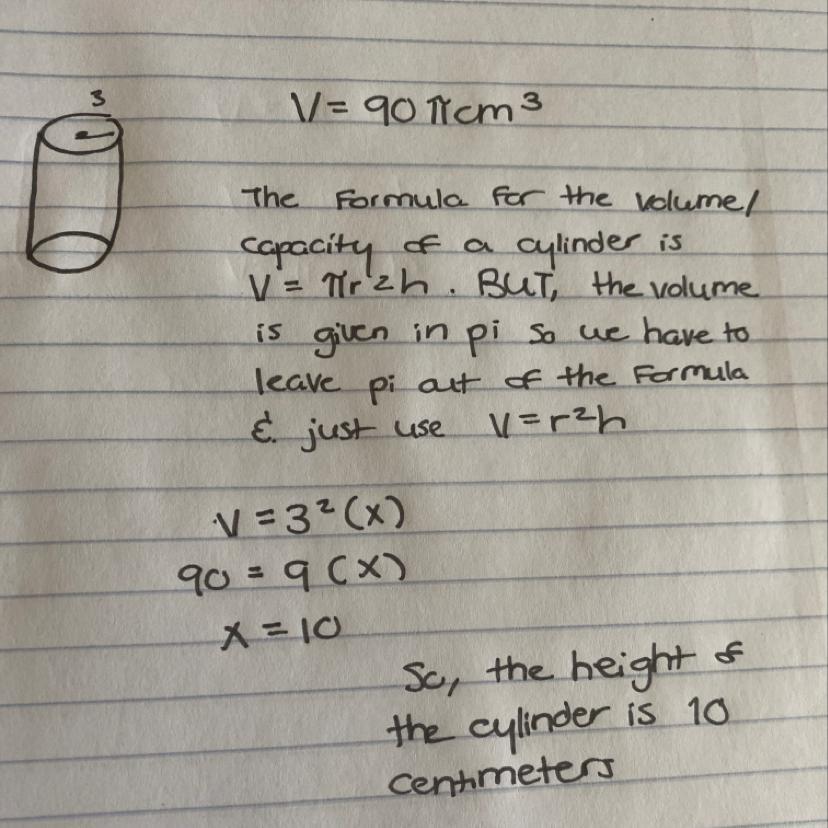 3
V = 90 πcm³
The Formula for the volume/
capacity of a cylinder is
V = πr²h. BUT, the volume
is given in pi so we have to
leave pi out of the Formula
& just use V=r²h
V = 3²(x)
90 = 9(x)
x = 10
So, the height of
the cylinder is 10
centimeters